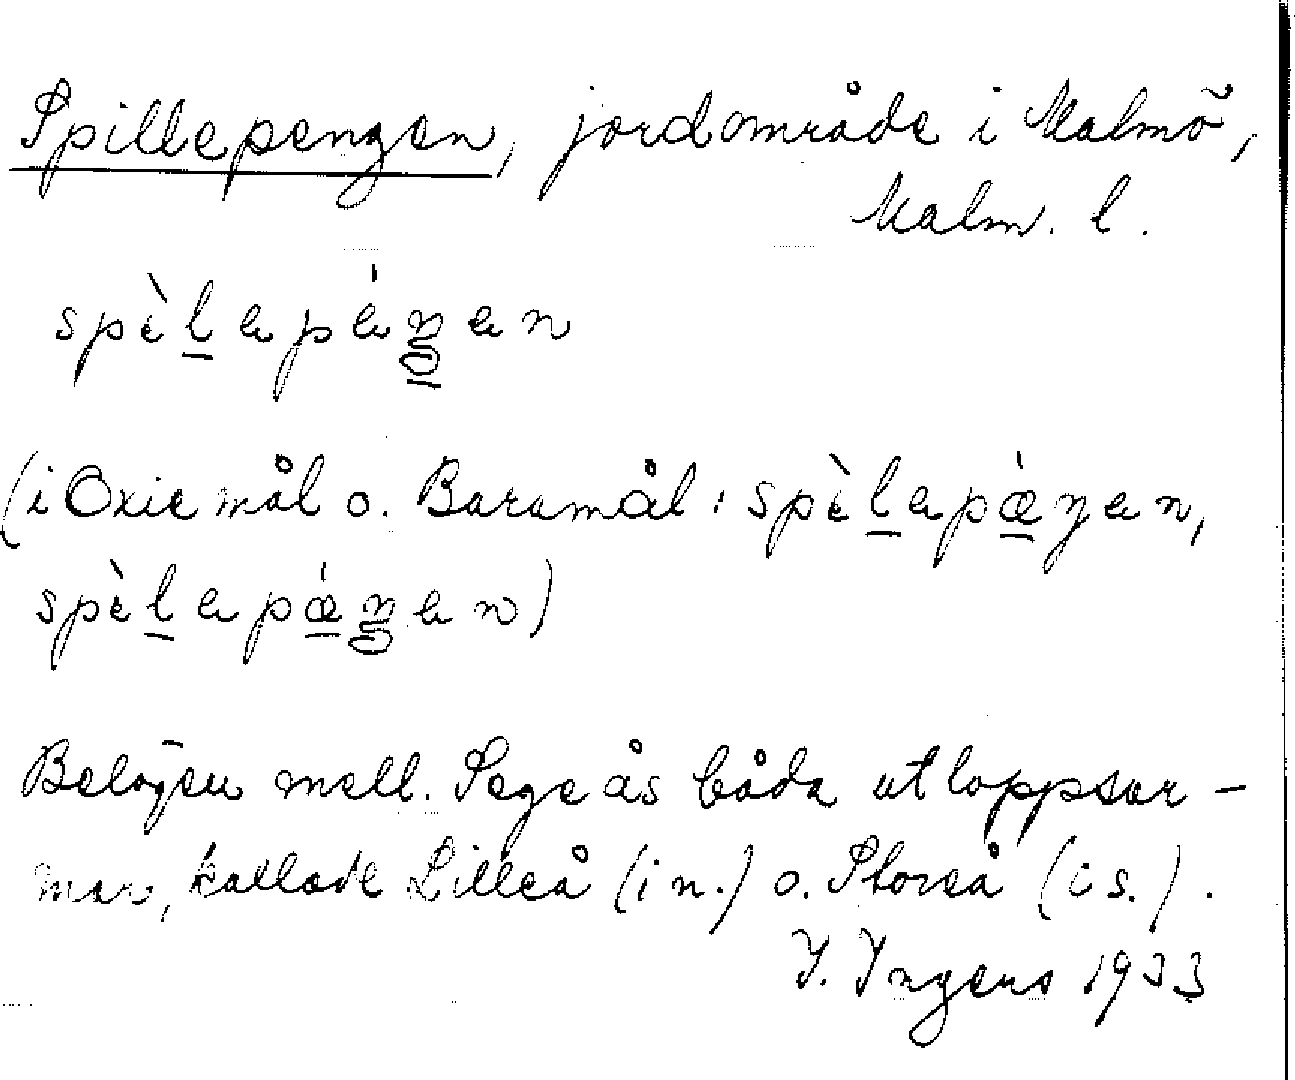 Spillepengen, jordområde i Malmö,
Malm. l.
spèlepéŋen
(i Oxie mål o. Baramål: spèlepǽŋen,
spèlepǽŋen)
Belägen mell. Sege ås båda utloppsar-
mar, kallade Lilleå (i n.) o. Storeå (i s.).
I. Ingers 1933